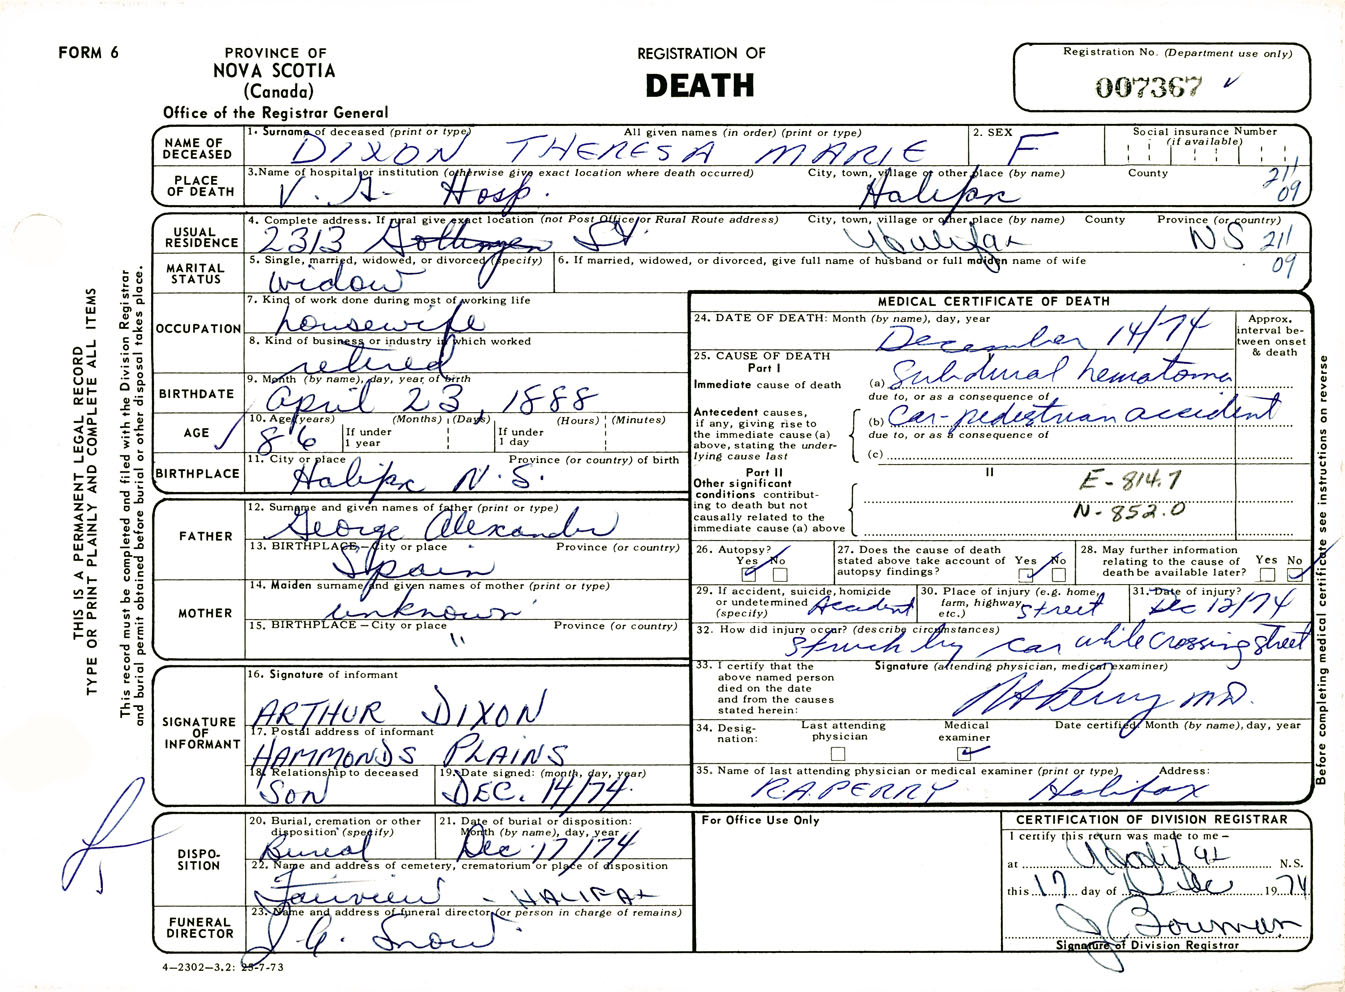 FORM 6
PROVINCE OF
NOVA SCOTIA
(Canada)
Office of the Registrar General
REGISTRATION OF
DEATH
Registration No. (Department use only)
007367 ✓
NAME OF DECEASED
1. Surname of deceased (print or type) All given names (in order) (print or type)
DIXON THERESA MARIE
2. SEX
F
Social insurance Number (if available)
PLACE OF DEATH
3. Name of hospital or institution (otherwise give exact location where death occurred) City, town, village or other place (by name) County
V. G. Hosp. Halifax
211
09
USUAL RESIDENCE
4. Complete address. If rural give exact location (not Post Office or Rural Route address) City, town, village or other place (by name) County Province (or country)
2313 Gottingen St. Halifax NS 211
09
MARITAL STATUS
5. Single, married, widowed, or divorced (specify)
widow
6. If married, widowed, or divorced, give full name of husband or full maiden name of wife
OCCUPATION
7. Kind of work done during most of working life
housewife
8. Kind of business or industry in which worked
retired
BIRTHDATE
9. Month (by name), day, year of birth
April 23, 1888
AGE
10. Age (years) (Months) (Days) (Hours) (Minutes)
86
If under 1 year
If under 1 day
BIRTHPLACE
11. City or place Province (or country) of birth
Halifax N.S.
FATHER
12. Surname and given names of father (print or type)
George Alexander
13. BIRTHPLACE – City or place Province (or country)
Spain
MOTHER
14. Maiden surname and given names of mother (print or type)
unknown
15. BIRTHPLACE – City or place Province (or country)
"
SIGNATURE OF INFORMANT
16. Signature of informant
ARTHUR DIXON
17. Postal address of informant
HAMMONDS PLAINS
18. Relationship to deceased
SON
19. Date signed: (month, day, year)
DEC. 14/74
DISPO-
SITION
20. Burial, cremation or other disposition (specify)
Burial
21. Date of burial or disposition: Month (by name), day, year
Dec 17/74
22. Name and address of cemetery, crematorium or place of disposition
Fairview - HALIFAX
FUNERAL DIRECTOR
23. Name and address of funeral director (or person in charge of remains)
J. A. Snow
4–2302–3.2: 25-7-73
MEDICAL CERTIFICATE OF DEATH
24. DATE OF DEATH: Month (by name), day, year
December 14/74
Approx. interval be-
tween onset & death
25. CAUSE OF DEATH
Part I
Immediate cause of death
(a) Subdural hematoma
due to, or as a consequence of
Antecedent causes,
if any, giving rise to
the immediate cause (a)
above, stating the under-
lying cause last
(b) Car-pedestrian accident
due to, or as a consequence of
(c)
Part II
II
Other significant
conditions contribut-
ing to death but not
causally related to the
immediate cause (a) above
E-814.7
N-852.0
26. Autopsy?
Yes No
27. Does the cause of death stated above take account of autopsy findings?
Yes No
28. May further information relating to the cause of death be available later?
Yes No
29. If accident, suicide, homicide or undetermined (specify)
Accident
30. Place of injury (e.g. home, farm, highway, etc.)
street
31. Date of injury?
Dec 12/74
32. How did injury occur? (describe circumstances)
Struck by car while crossing street
33. I certify that the
above named person
died on the date
and from the causes
stated herein:
Signature (attending physician, medical examiner)
RA Perry MD.
34. Desig-
nation:
Last attending physician
Medical examiner
Date certified: Month (by name), day, year
35. Name of last attending physician or medical examiner (print or type) Address:
R.A. PERRY Halifax
For Office Use Only
CERTIFICATION OF DIVISION REGISTRAR
I certify this return was made to me –
at Halifax N.S.
this 17 day of Dec 1974
J Bowman
Signature of Division Registrar
THIS IS A PERMANENT LEGAL RECORD
TYPE OR PRINT PLAINLY AND COMPLETE ALL ITEMS
This record must be completed and filed with the Division Registrar
and burial permit obtained before burial or other disposal takes place.
Before completing medical certificate see instructions on reverse